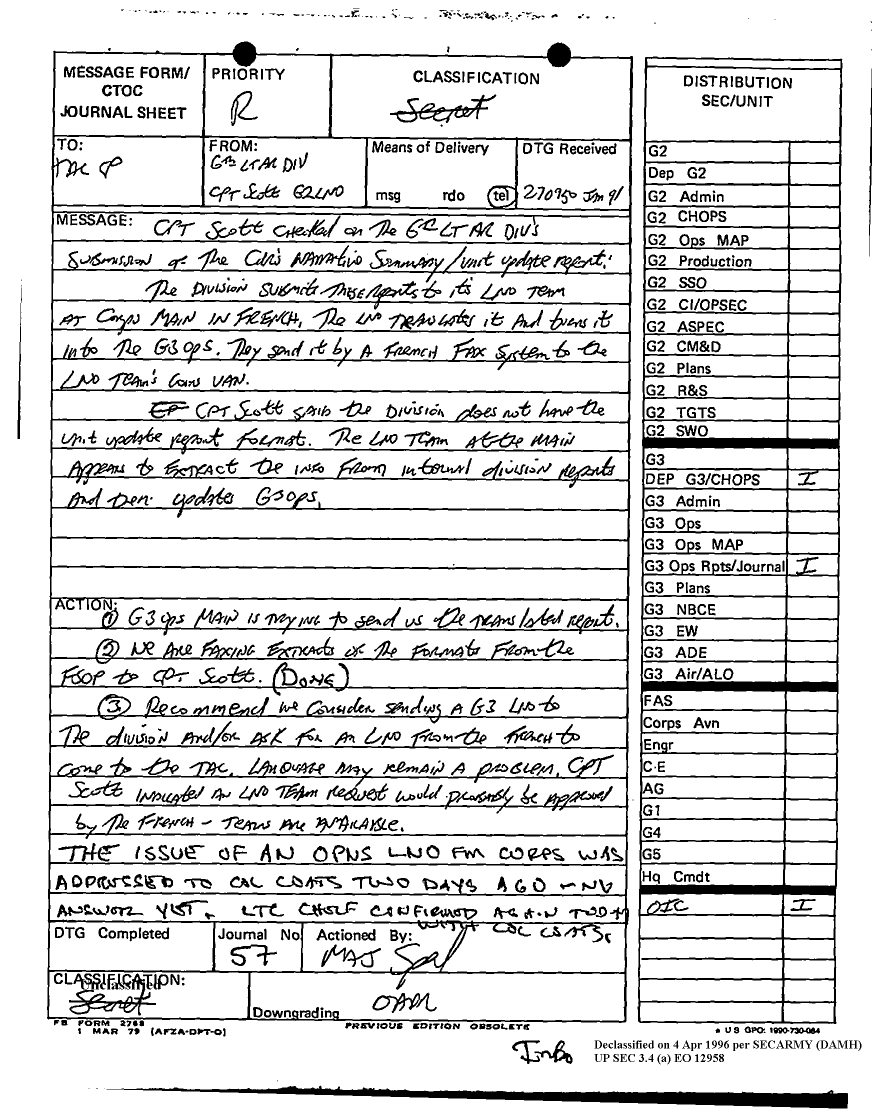 MESSAGE FORM/
CTOC
JOURNAL SHEET
PRIORITY
R
CLASSIFICATION
Secret
TO:
TAC CP
FROM:
6th LT AR DIV
CPT Scott G2 LNO
Means of Delivery
msg rdo tel
DTG Received
270950 Jan 91
MESSAGE: CPT Scott checked on the 6th LT AR DIV's
submission of the Cdr's Narrative Summary/unit update report.
The Division submits these reports to its LNO Team
at Corps Main in French. The LNO translates it and turns it
into the G3 Ops. They send it by a French Fax System to the
LNO Team's Coms Van.
CPT Scott said the Division does not have the
unit update report format. The LNO Team at the Main
appears to extract the info from internal division reports
and then updates G3 Ops.
ACTION:
① G3 Ops Main is trying to send us the translated report.
② We are Faxing Extracts of the Formats From the
FSOP to CPT Scott. (Done)
③ Recommend we consider sending a G3 LNO to
The division and/or ask for an LNO from the French to
come to the TAC. Language may remain a problem. CPT
Scott indicated an LNO Team request would probably be approved
by the French - Teams are available.
THE ISSUE OF AN OPNS LNO FM CORPS WAS
ADDRESSED TO COL COATS TWO DAYS AGO - NO
ANSWER YET. LTC CONFIRMED AGAIN TODAY
WITH COL COATS.
DTG Completed
Journal No
57
Actioned By:
MAJ
CLASSIFICATION:
Unclassified
Secret
Downgrading
OADR
FB FORM 2768
1 MAR 79 (AFZA-DPT-O)
PREVIOUS EDITION OBSOLETE
DISTRIBUTION
SEC/UNIT
G2
Dep G2
G2 Admin
G2 CHOPS
G2 Ops MAP
G2 Production
G2 SSO
G2 CI/OPSEC
G2 ASPEC
G2 CM&D
G2 Plans
G2 R&S
G2 TGTS
G2 SWO
G3
DEP G3/CHOPS I
G3 Admin
G3 Ops
G3 Ops MAP
G3 Ops Rpts/Journal I
G3 Plans
G3 NBCE
G3 EW
G3 ADE
G3 Air/ALO
FAS
Corps Avn
Engr
C-E
AG
G1
G4
G5
Hq Cmdt
OIC I
★ U S GPO: 1990-730-084
Info
Declassified on 4 Apr 1996 per SECARMY (DAMH)
UP SEC 3.4 (a) EO 12958